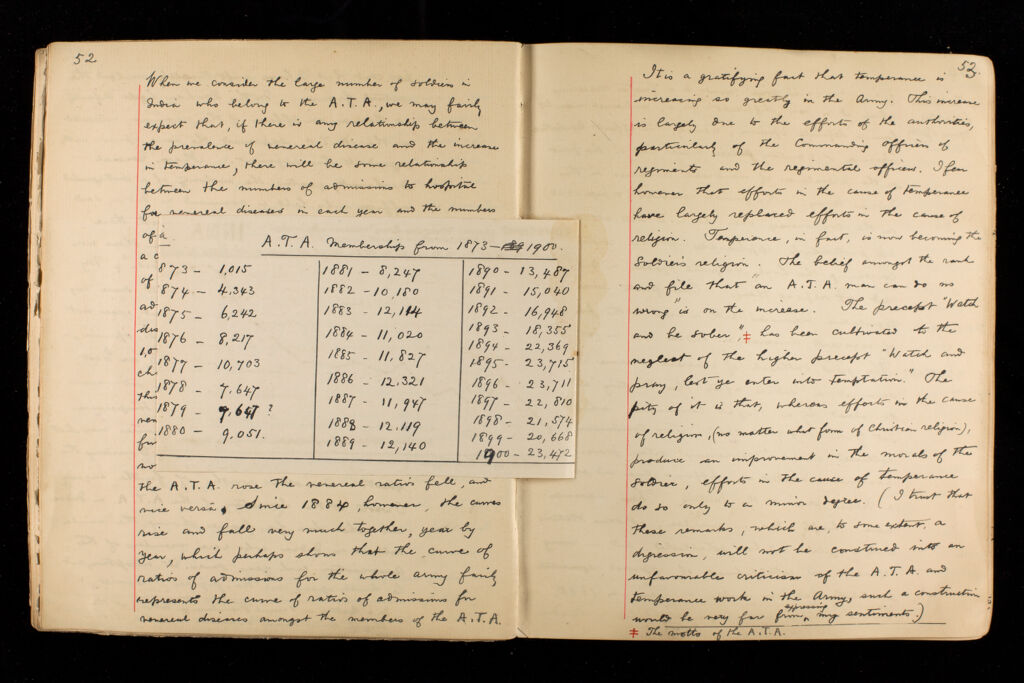 52
When we consider the large number of soldiers in
India who belong to the A.T.A., we may fairly
expect that, if there is any relationship between
the prevalence of venereal disease and the increase
in temperance, there will be some relationship
between the numbers of admissions to hospital
for venereal diseases in each year and the numbers
of
a
of
ad
dis
1,0
ch
this
ven
fu
no
A.T.A. Membership from 1873 – 1900.
873 – 1,015
874 – 4,343
1875 – 6,242
1876 – 8,217
1877 – 10,703
1878 – 7,647
1879 – 9,647 ?
1880 – 9,051.
1881 – 8,247
1882 – 10,180
1883 – 12,114
1884 – 11,020
1885 – 11,827
1886 – 12,321
1887 – 11,947
1888 – 12,119
1889 – 12,140
1890 – 13,487
1891 – 15,040
1892 – 16,948
1893 – 18,355
1894 – 22,369
1895 – 23,715
1896 – 23,711
1897 – 22,810
1898 – 21,574
1899 – 20,668
1900 – 23,472
the A.T.A. rose the venereal ratios fell, and
vice versâ. Since 1884, however, the curves
rise and fall very much together, year by
year, which perhaps shows that the curve of
ratios of admissions for the whole army fairly
represents the curve of ratios of admissions for
venereal diseases amongst the members of the A.T.A.
53.
It is a gratifying fact that temperance is
increasing so greatly in the Army. This increase
is largely due to the efforts of the authorities,
particularly of the Commanding Officers of
regiments and the regimental officers. I fear
however that efforts in the cause of temperance
have largely replaced efforts in the cause of
religion. Temperance, in fact, is now becoming the
Soldier's religion. The belief amongst the rank
and file that "an A.T.A. man can do no
wrong" is on the increase. The precept "Watch
and be sober", ‡ has been cultivated to the
neglect of the higher precept "Watch and
pray, lest ye enter into temptation." The
pity of it is that, whereas efforts in the cause
of religion, (no matter what form of Christian religion),
produce an improvement in the morals of the
soldier, efforts in the cause of temperance
do so only to a minor degree. (I trust that
these remarks, which are, to some extent, a
digression, will not be construed into an
unfavourable criticism of the A.T.A. and
temperance work in the Army, such a construction
would be very far from expressing my sentiments.)
‡ The motto of the A.T.A.